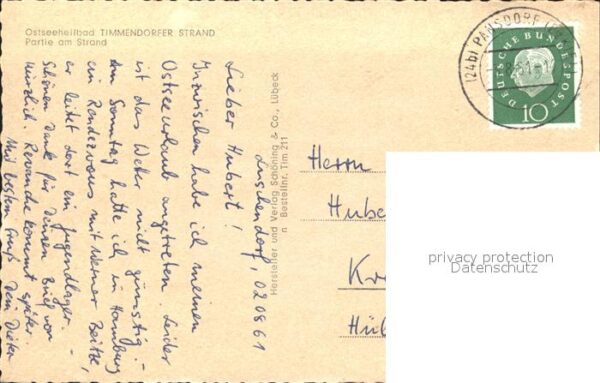 Ostseeheilbad TIMMENDORFER STRAND
Partie am Strand
Luschendorf, 02.08.61
Lieber Hubert!
Inzwischen habe ich meinen
Ostseeurlaub angetreten. Leider
ist das Wetter nicht günstig. -
Am Sonntag hatte ich in Hamburg
ein Rendezvous mit Werner Beitze,
er leitet dort ein Jugendlager. -
Schönen Dank für Deinen Brief von
Revanche kommt später.
Mit besten Gruß Dein Dieter
Hersteller und Verlag Schöning & Co., Lübeck
n Bestellnr. Tim 211
(24b) PANSDORF
DEUTSCHE BUNDESPOST
10
Herrn
Hube
Kre
Hü
privacy protection
Datenschutz